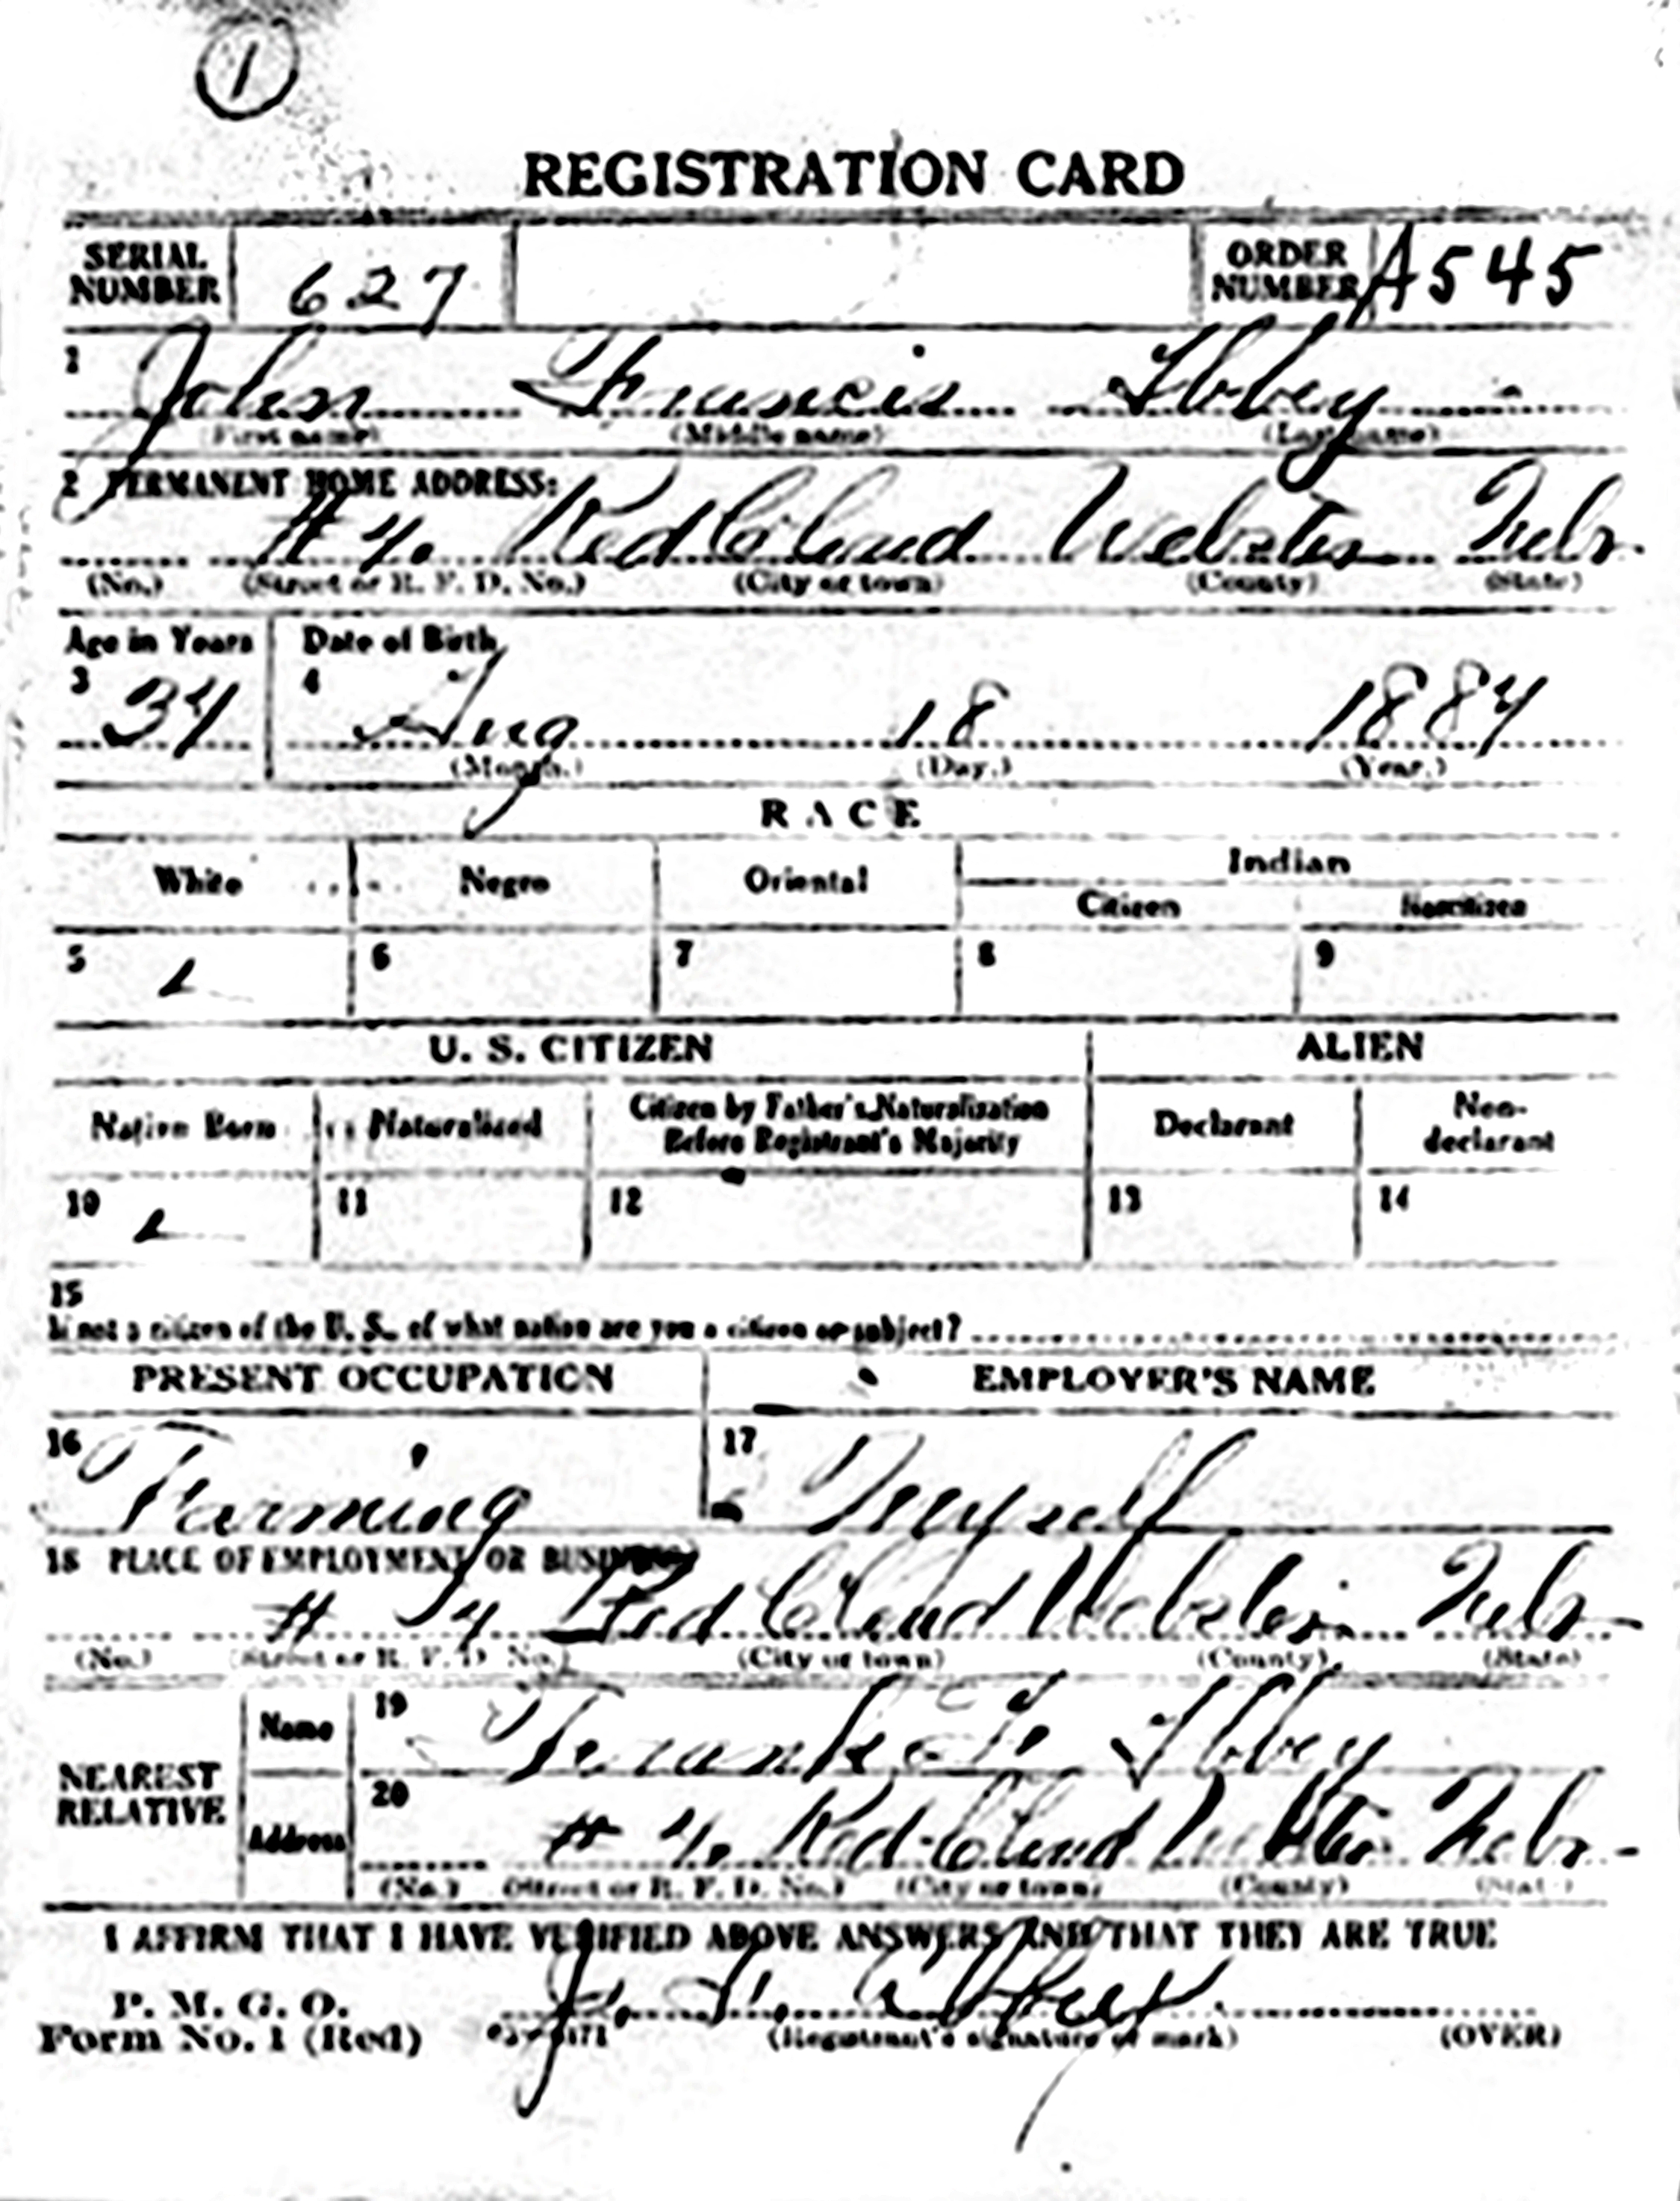 1
REGISTRATION CARD
SERIAL NUMBER 627 ORDER NUMBER A545
1 John Francis Abbey
(First name) (Middle name) (Last name)
2 PERMANENT HOME ADDRESS:
# 4. Red Cloud Webster Nebr.
(No.) (Street or R. F. D. No.) (City or town) (County) (State)
Age in Years Date of Birth
3 34 4 Aug 18 1884
(Month.) (Day.) (Year.)
RACE
White Negro Oriental Indian
Citizen Noncitizen
5 6 7 8 9
U. S. CITIZEN ALIEN
Native Born Naturalized Citizen by Father's Naturalization Before Registrant's Majority Declarant Non-declarant
10 11 12 13 14
15
If not a citizen of the U. S., of what nation are you a citizen or subject?
PRESENT OCCUPATION EMPLOYER'S NAME
16 Farming 17 Myself
18 PLACE OF EMPLOYMENT OR BUSINESS:
# 4 Red Cloud Webster Nebr
(No.) (Street or R. F. D. No.) (City or town) (County) (State)
NEAREST RELATIVE Name 19 Frank F. Abbey
Address 20 # 4. Red Cloud Webster Nebr
(No.) (Street or R. F. D. No.) (City or town) (County) (State)
I AFFIRM THAT I HAVE VERIFIED ABOVE ANSWERS AND THAT THEY ARE TRUE
P. M. G. O.
Form No. 1 (Red) J. F. Abbey
(Registrant's signature or mark) (OVER)